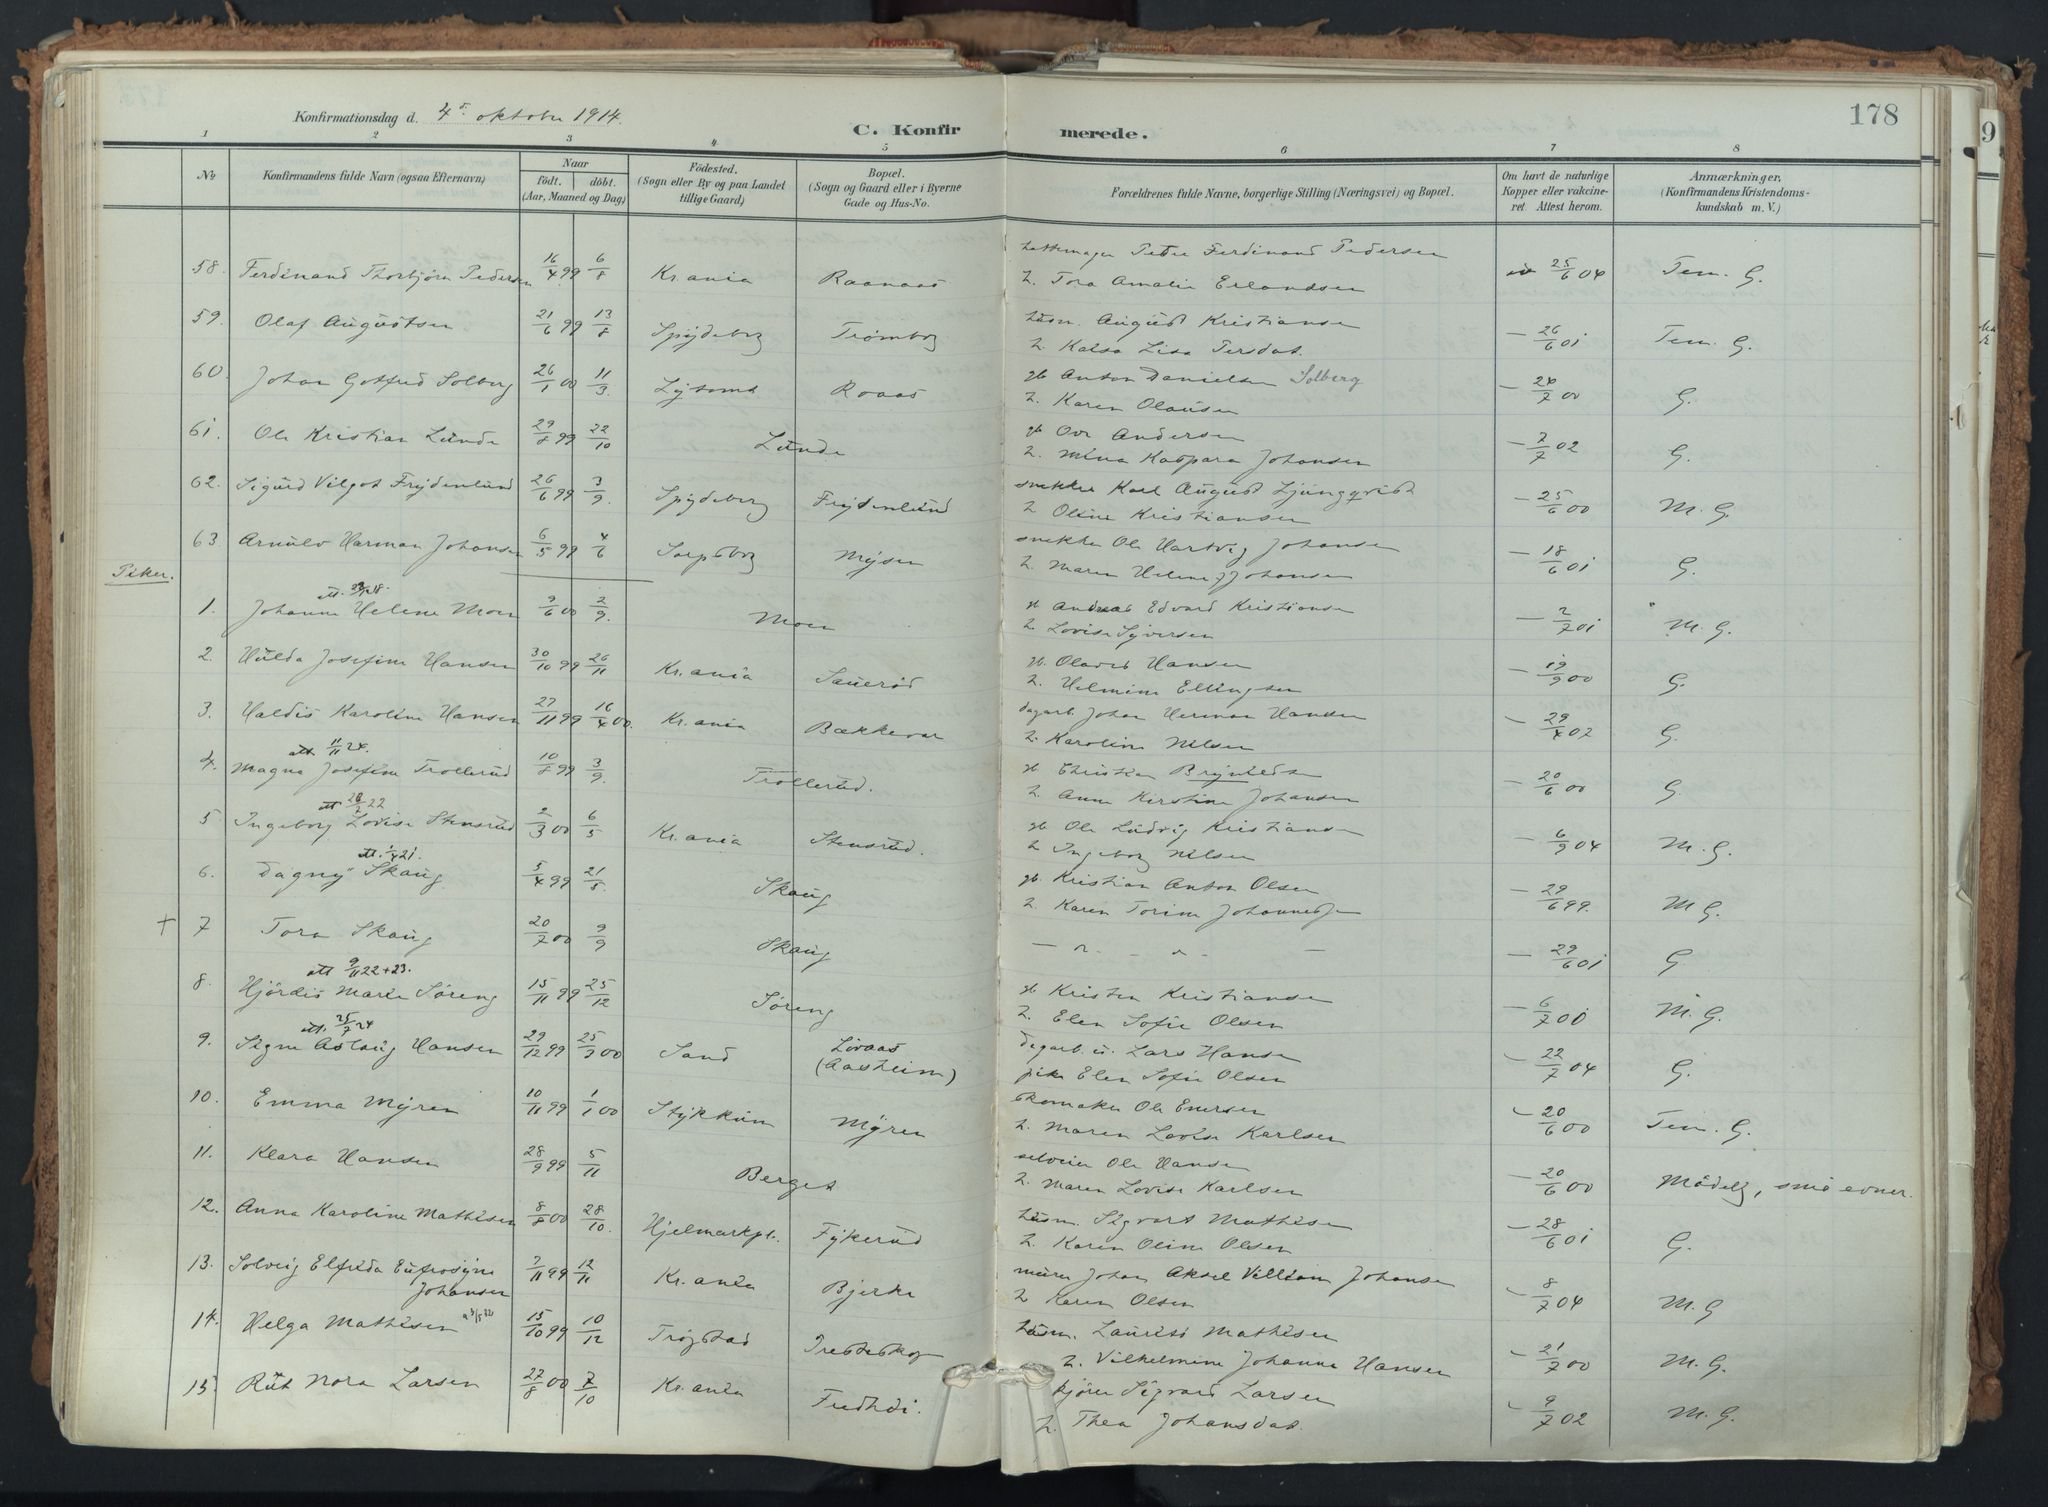 178
Konfirmationsdag d. 4de oktober 1914.
C. Konfirmerede.
1 2 3 4 5 6 7 8
No
Konfirmandens fulde Navn (ogsaa Efternavn)
Naar
födt. döbt.
(Aar, Maaned og Dag)
Födested.
(Sogn eller By og paa Landet
tillige Gaard)
Bopæl.
(Sogn og Gaard eller i Byerne
Gade og Hus-No.
Forældrenes fulde Navne, borgerlige Stilling (Næringsvei) og Bopæl.
Om havt de naturlige
Kopper eller vakcine-
ret Attest herom.
Anmærkninger,
(Konfirmandens Kristendoms-
kundskab m. V.)
58. Ferdinand Thorbjørn Pedersen 16/4 99 6/8 Kr.ania Raanaas Petter Ferdinand Pedersen 25/6 04 Tem. G.
2. Tora Amalie Erlandsen
59. Olaf Augustsen 21/6 99 13/8 Spydeberg Trømborg husm. August Kristiansen — 26/6 01 Tem. G.
2. Kaisa Lisa Persdat.
60. Johan Gotfred Solberg 26/1 00 11/3 Roaas gb Anton Danielsen Solberg — 24/7 00 G.
2. Karen Olausen
61. Ole Kristian Lunde 29/8 99 22/10 Lunde gb Ove Andersen — 7/7 02 G.
2. Mina Kaspara Johansen
62. Sigurd Vilgot Frydenlund 26/6 99 3/9. Spydeberg Frydenlund snekker Karl August Ljungqvist — 25/6 00 M. G.
2 Oline Kristiansen
63. Arnulv Herman Johansen 6/5 99 4/6 Sarpsborg Mysen snekker Ole Hartvig Johansen — 18/6 01 G.
2. Maren Helene Johansen
Piker.
1. Johanne Helene Moen 9/6 00 2/9. Moen gb Andreas Edvard Kristiansen — 2/7 01 M. G.
2 Lovise Syversen
2. Hulda Josefine Hansen 30/10 99 26/11 Kr.ania Sauerød gb. Olaves Hansen — 19/9 00 G.
2. Helmine Ellingsen
3. Haldis Karoline Hansen 27/11 99 16/4 00. Kr.ania Bækkevar dagarb. Johan Herman Hansen — 29/4 02 G.
2. Karoline Nilsen
att 11/11 24.
4. Magna Josefine Trollerud 10/8 99 3/9. Trollerud. gb Christian Bryntedsn — 20/6 00 G.
2. Anne Kirstine Johansen
att 20/2 22
5 Ingeborg Lovise Stensrud 2/3 00 6/5 Kr.ania Stensrud. gb. Ole Ludvig Kristiansen — 6/9 04 M. G.
2 Ingeborg Nilsen
att. 1/4 21.
6. Dagny Skaug 5/4 99 21/5. Skaug gb. Kristian Anton Olsen — 29/6 99. M G.
2. Karen Torine Johannesen
+ 7 Tora Skaug 20/7 00 9/9 Skaug — " - " — — 29/6 01 G.
att 9/11 22 + 23.
8. Hjördis Marie Søreng 15/11 99 25/12 Søreng gb Kristen Kristiansen — 6/7 00 M. G.
2. Elen Sofie Olsen
att. 25/7 24
9. Signe Aslaug Hansen 29/12 99 25/3 00 Sand Løvaas (Aasheim) dagarb. u. Lars Hansen — 22/7 04 G.
pike Elen Sofie Olsen
10. Emma Myren 10/11 99 1/1 00 Stykkun Myren skomaker Ole Enersen — 20/6 00 Tem. G.
2. Maren Lovise Karlsen
11. Klara Hansen 28/9 99 5/11 Berget selveier Ole Hansen — 20/6 00 Mådelg, små evner.
2. Maren Lovise Karlsen
12. Anna Karoline Mathisen 8/8 00 28/10. Hjelmarkpl. Fykerud husm. Sigvart Mathisen — 28/6 01 G.
2. Karen Oline Olsen
13. Solveig Elfrida Eufrosyne 7/11 99 12/11 Kr.ania Bjerke murer Johan Aksel Villiam Johansen — 8/7 04 M. G
Johansen 2 Karen Olsen
14. Helga Mathisen 15/10 99 10/12 Trøgstad Presteskog husm. Laurits Mathisen — 21/7 00 M. G.
2. Vilhelmine Johanne Hansen
15. Rut Nora Larsen 27/8 00 7/10 Kr.ania Fredhei. kjører Sigvard Larsen — 9/7 02 M. G.
2. Thea Johansdat.